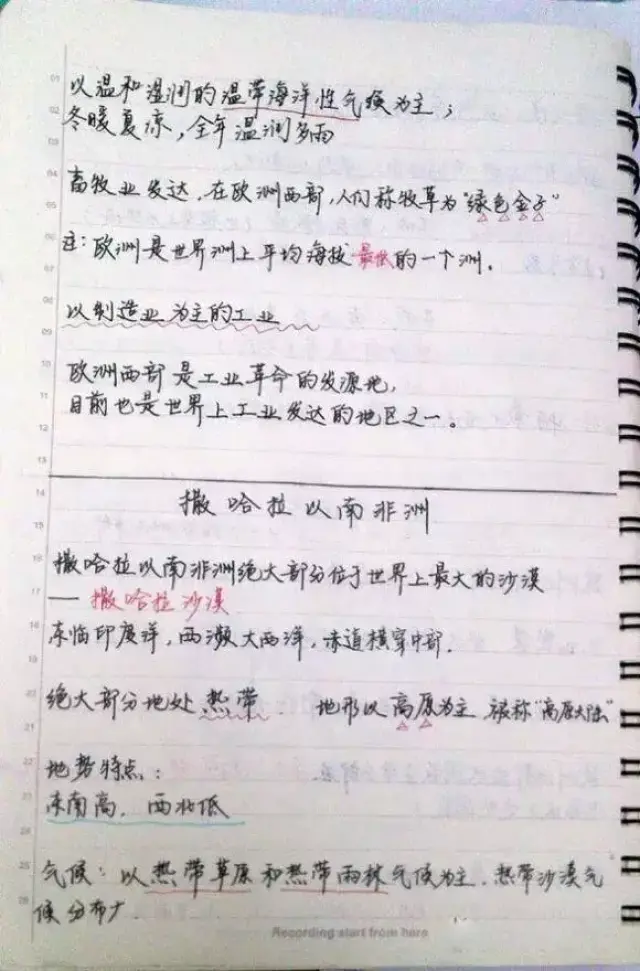 以温和湿润的温带海洋性气候为主；
冬暖夏凉，全年温润多雨
畜牧业发达，在欧洲西部，人们称牧草为"绿色金子"
注：欧洲是世界洲上平均海拔最低的一个洲。
以制造业为主的工业
欧洲西部是工业革命的发源地，
目前也是世界上工业发达的地区之一。
撒哈拉以南非洲
撒哈拉以南非洲绝大部分位于世界上最大的沙漠
——撒哈拉沙漠
东临印度洋，西濒大西洋，赤道横穿中部．
绝大部分地处热带 地形以高原为主 被称"高原大陆"
地势特点：
东南高．西北低
气候：以热带草原和热带雨林气候为主．热带沙漠气
候分布广
Recording start from here
01
02
03
04
05
06
07
08
09
10
11
12
13
14
15
16
17
18
19
20
21
22
23
24
25
26